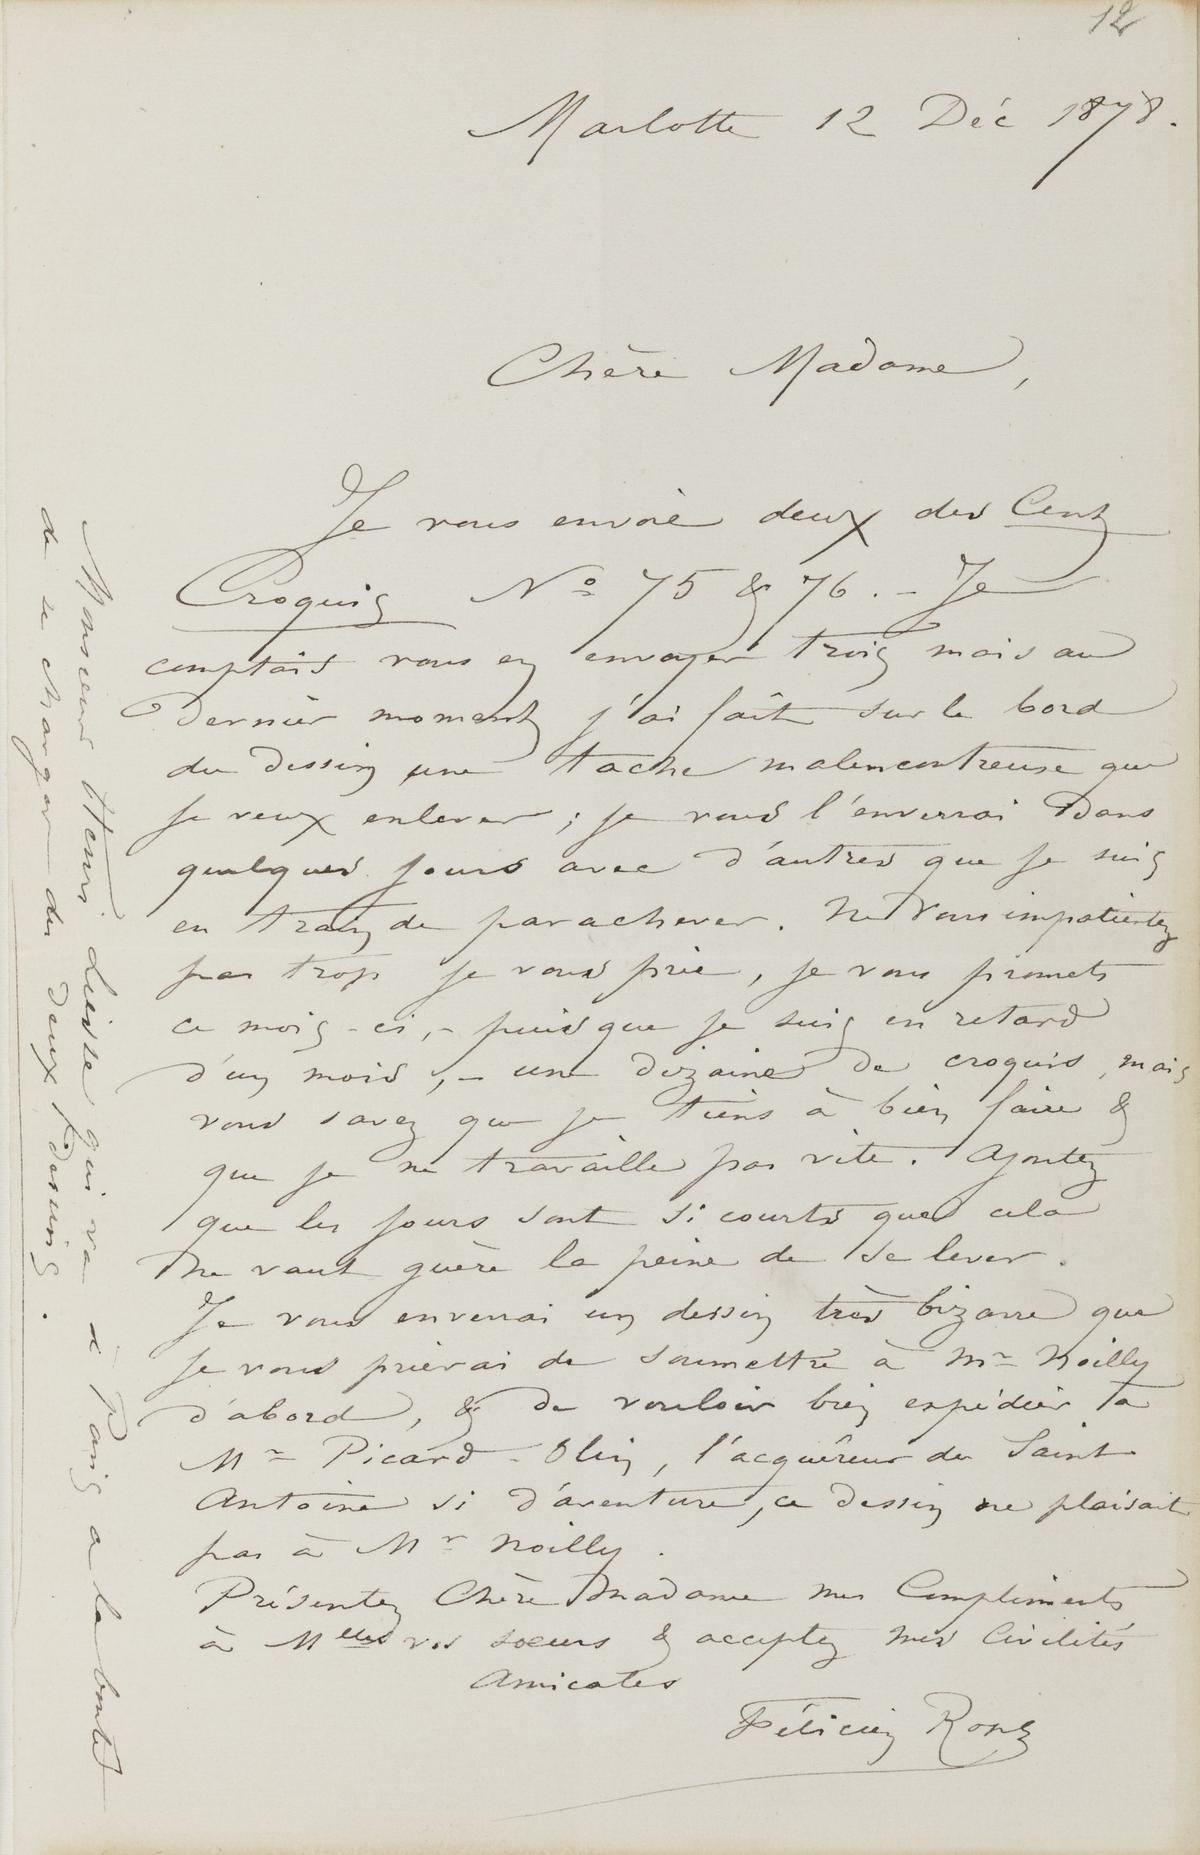 12
Marlotte 12 Déc 1878.
Chère Madame,
Je vous envoie deux des Cent
Croquis Nº 75 & 76. - Je
comptais vous en envoyer trois mais au
dernier moment j'ai fait sur le bord
du dessin une tache malencontreuse que
je veux enlever ; je vous l'enverrai dans
quelques jours avec d'autres que je suis
en train de parachever. Ne vous impatientez
pas trop je vous prie, je vous promets
ce mois-ci, - puisque je suis en retard
d'un mois, - une dizaine de croquis, mais
vous savez que je tiens à bien faire &
que je ne travaille pas vite. Ajoutez
que les jours sont si courts que cela
ne vaut guère la peine de se lever.
Je vous enverrai un dessin très bizarre que
je vous prierai de soumettre à Mr Noilly
d'abord, & de vouloir bien expédier à
Mr Picard-Olin, l'acquéreur du Saint
Antoine si d'aventure, ce dessin ne plaisait
pas à Mr Noilly.
Présentez Chère Madame mes Compliments
à Melles vos soeurs & acceptez mes Civilités
Amicales
Félicien Rops
Monsieur Henri Liesse qui va à Paris a la bonté
de se charger des deux dessins.